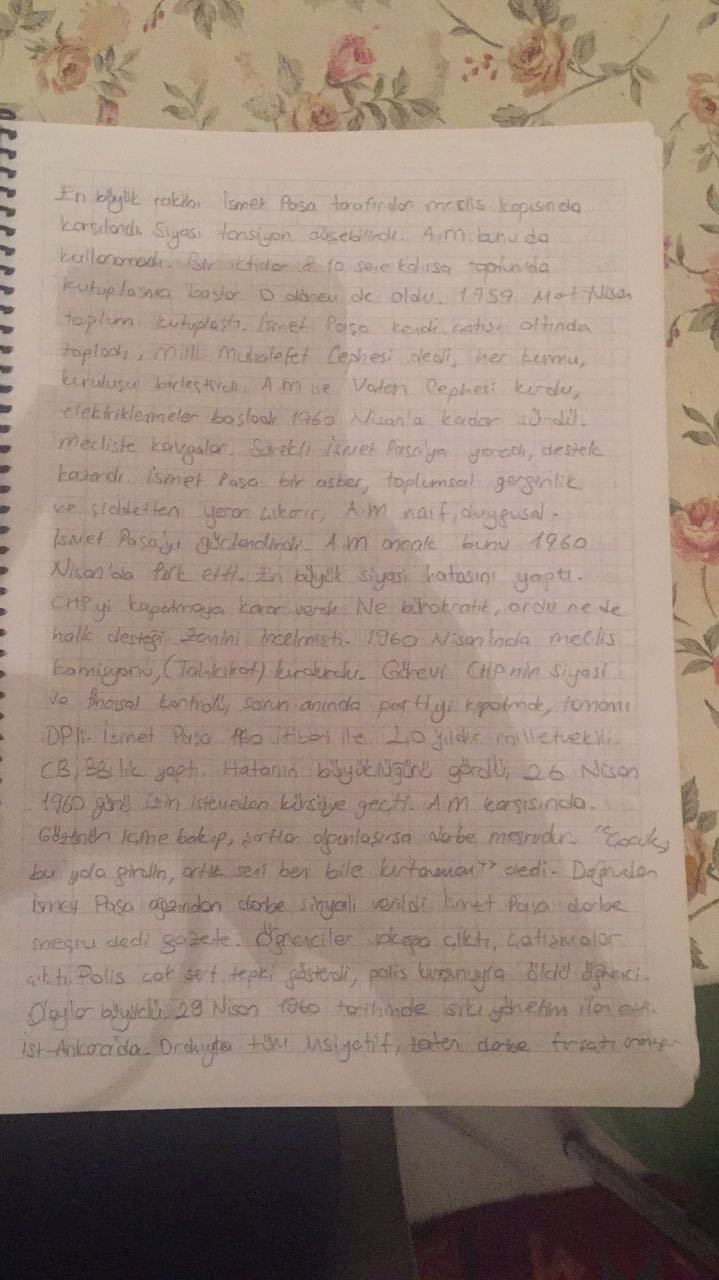 En büyük rakibi İsmet Paşa tarafından meclis kapısında
karşılandı. Siyasi tansiyon düşebilirdi. A.M bunu da
kullanamadı. Bir iktidar 8-10 sene kalırsa toplumda
kutuplaşma başlar. O dönem de oldu. 1959 Mart-Nisan
toplum kutuplaştı. İsmet Paşa kendi çatısı altında
topladı, Milli Muhalefet Cephesi dedi, her kurumu,
kuruluşu birleştirdi. A.M ise Vatan Cephesi kurdu,
elektriklenmeler başladı 1960 Nisan'a kadar sürdü.
mecliste kavgalar. Sürekli İsmet Paşa'ya yaradı, destek
kazandı. İsmet Paşa bir asker, toplumsal gerginlik
ve şiddetten yarar çıkarır, A.M naif, duygusal.
İsmet Paşa'yı güçlendirdi. A.M ancak bunu 1960
Nisan'da fark etti. En büyük siyasi hatasını yaptı.
CHP'yi kapatmaya karar verdi. Ne bürokratik, ordu ne de
halk desteği. Zemini incelmişti. 1960 Nisan'ında meclis
komisyonu, (Tahkikat) kurdurdu. Görevi CHP'nin siyasi
ve finansal kontrolü, sorun anında partiyi kapatmak, tamamı
DP'li. İsmet Paşa 60 itibari ile 40 yıldır milletvekili.
CB, BB'lik yaptı. Hatanın büyüklüğünü gördü, 26 Nisan
1960 günü izin istemeden kürsüye geçti. A.M karşısında.
Gözünün içine bakıp, şartlar olgunlaşırsa darbe meşrudur. "Çocuk,
bu yola girdin, artık seni ben bile kurtaramam" dedi. Doğrudan
İsmet Paşa ağzından darbe sinyali verildi. İsmet Paşa darbe
meşru dedi gazete. Öğrenciler sokağa çıktı, çatışmalar
çıktı. Polis çok sert tepki gösterdi, polis kurşunuyla öldü öğrenci.
Olaylar büyüdü, 29 Nisan 1960 tarihinde sıkı yönetim ilan etti.
İst-Ankara'da. Orduya tüm insiyatif, zaten darbe fırsatı